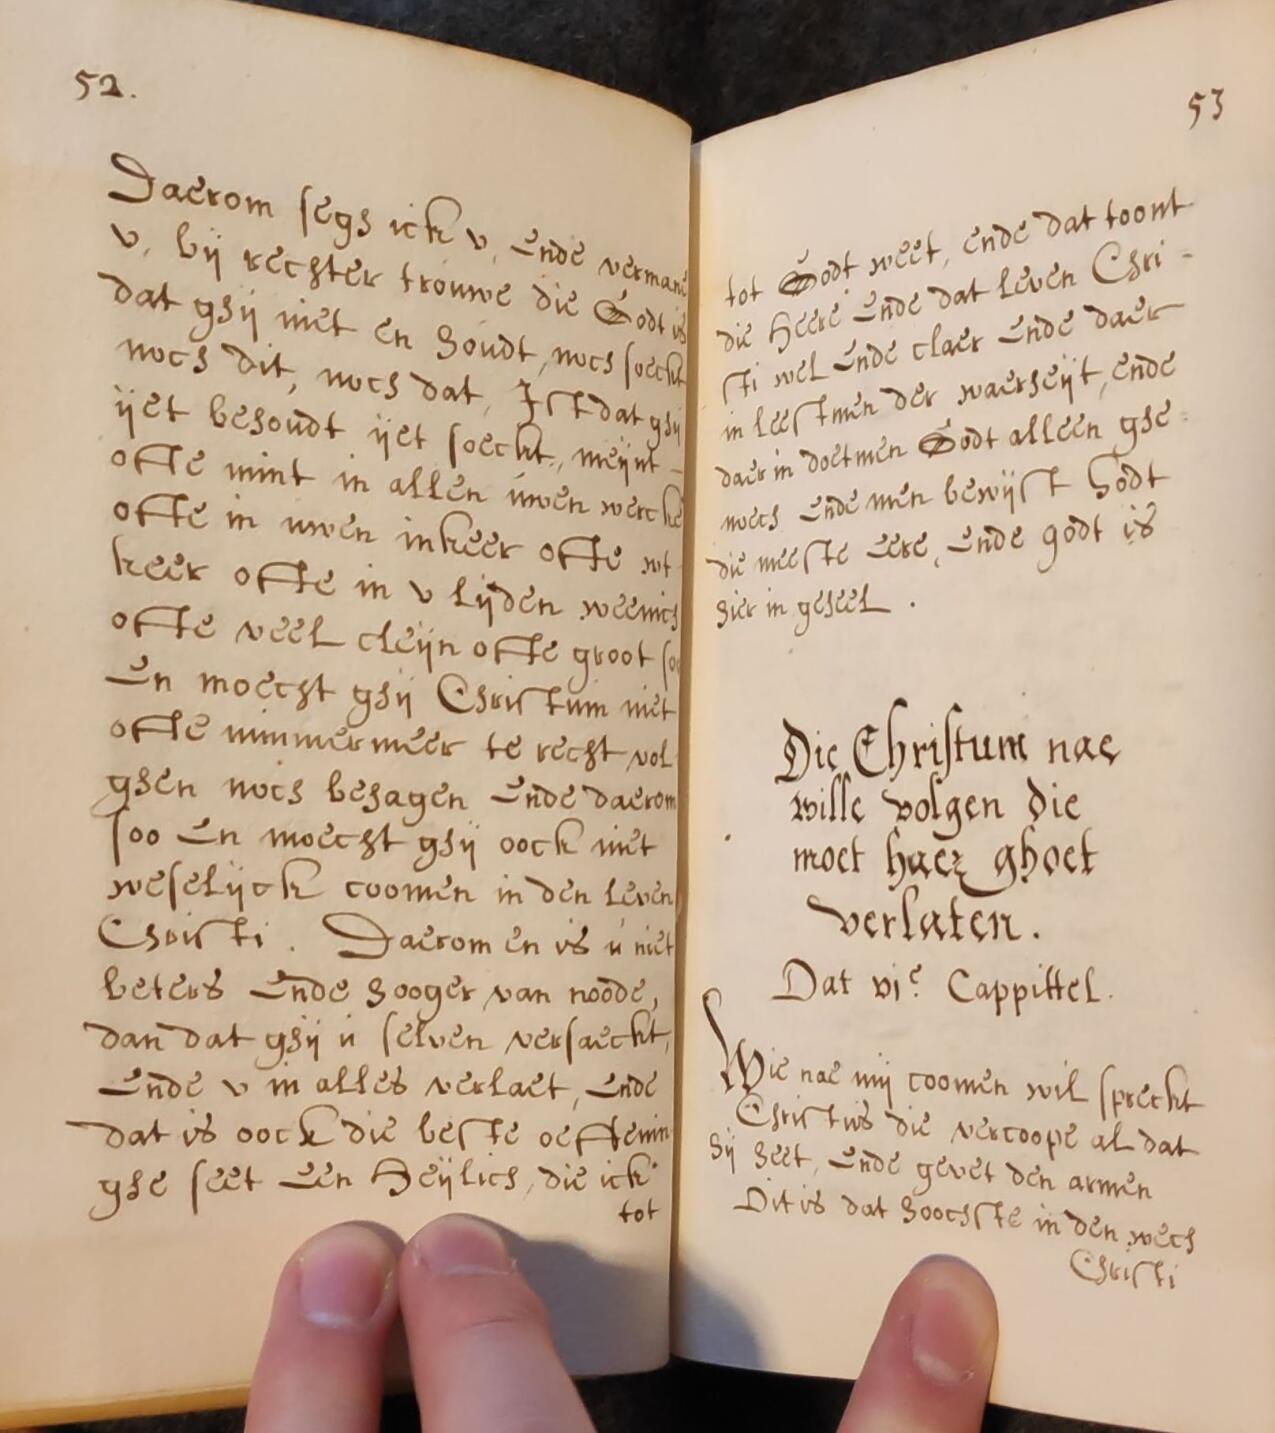 52.
Daerom segh ick v, ende vermane
v, bij rechter trouwe die Godt is
dat ghij niet en houdt, noch soeckt
noch dit, noch dat, Ist dat ghij
ijet behoudt ijet soeckt, meijnt
ofte mint in allen uwen wercke
ofte in uwen inkeer ofte wt
keer ofte in v lijden weenich
ofte veel cleijn ofte groot soo
En moecht ghij Christum niet
ofte nimmermeer te recht vol
ghen noch behagen Ende daerom
soo En moecht ghij oock niet
weselijck coomen in den leven
Christi. Daerom en is u niet
beters Ende hooger van noode,
dan dat ghij u selven versaeckt,
Ende v in alles verlaet, Ende
dat is oock die beste oeffenin
ghe seet Een Heijlich, die ick
tot
53
tot Godt weet, ende dat toont
die Heere Ende dat leven Chri-
sti wel Ende claer Ende daer
in leestmen der waerheijt, ende
daer in doetmen Godt alleen ghe-
noech Ende men bewijst Godt
die meeste eere, Ende godt is
hier in geheel.
Die Christum nae
wille volgen die
moet haer ghoet
verlaten.
Dat vje. Cappittel.
Wie nae mij coomen wil spreckt
Christus die vercoope al dat
hij heet, Ende gevet den armen
Dit is dat hoochste in den wech
Christi